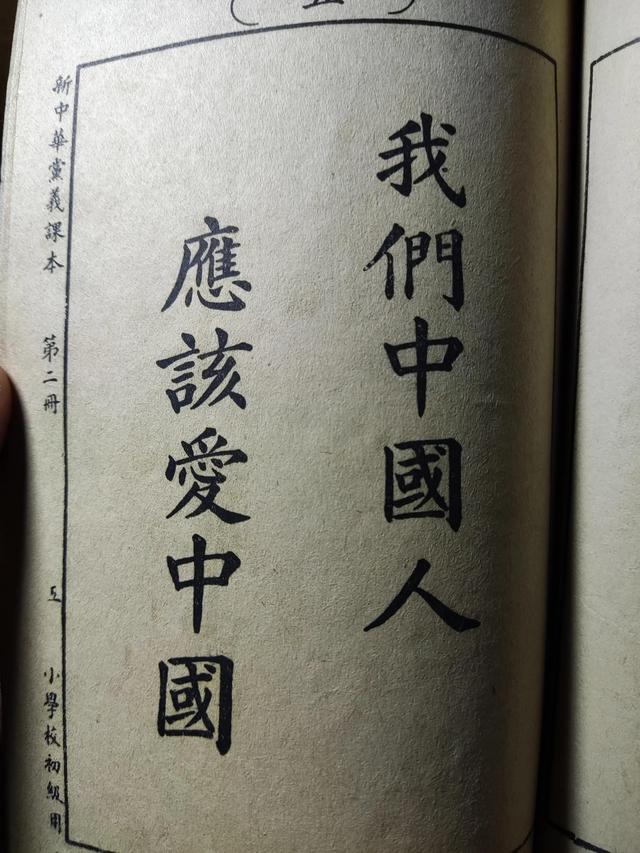 (五)
我們中國人
應該愛中國
新中華黨義課本 第二冊 五 小學校初級用